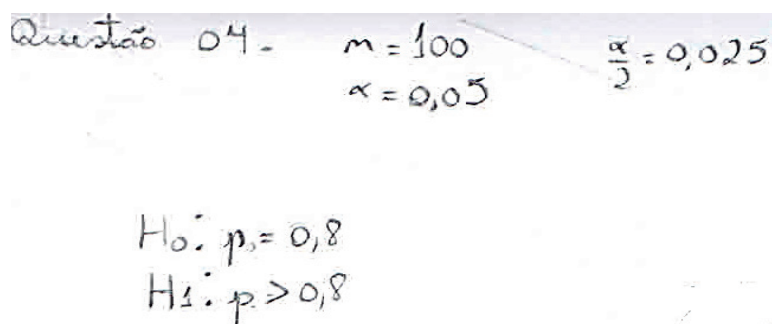 Questão 04. n = 100 α/2 = 0,025
α = 0,05
H0: p = 0,8
H1: p > 0,8